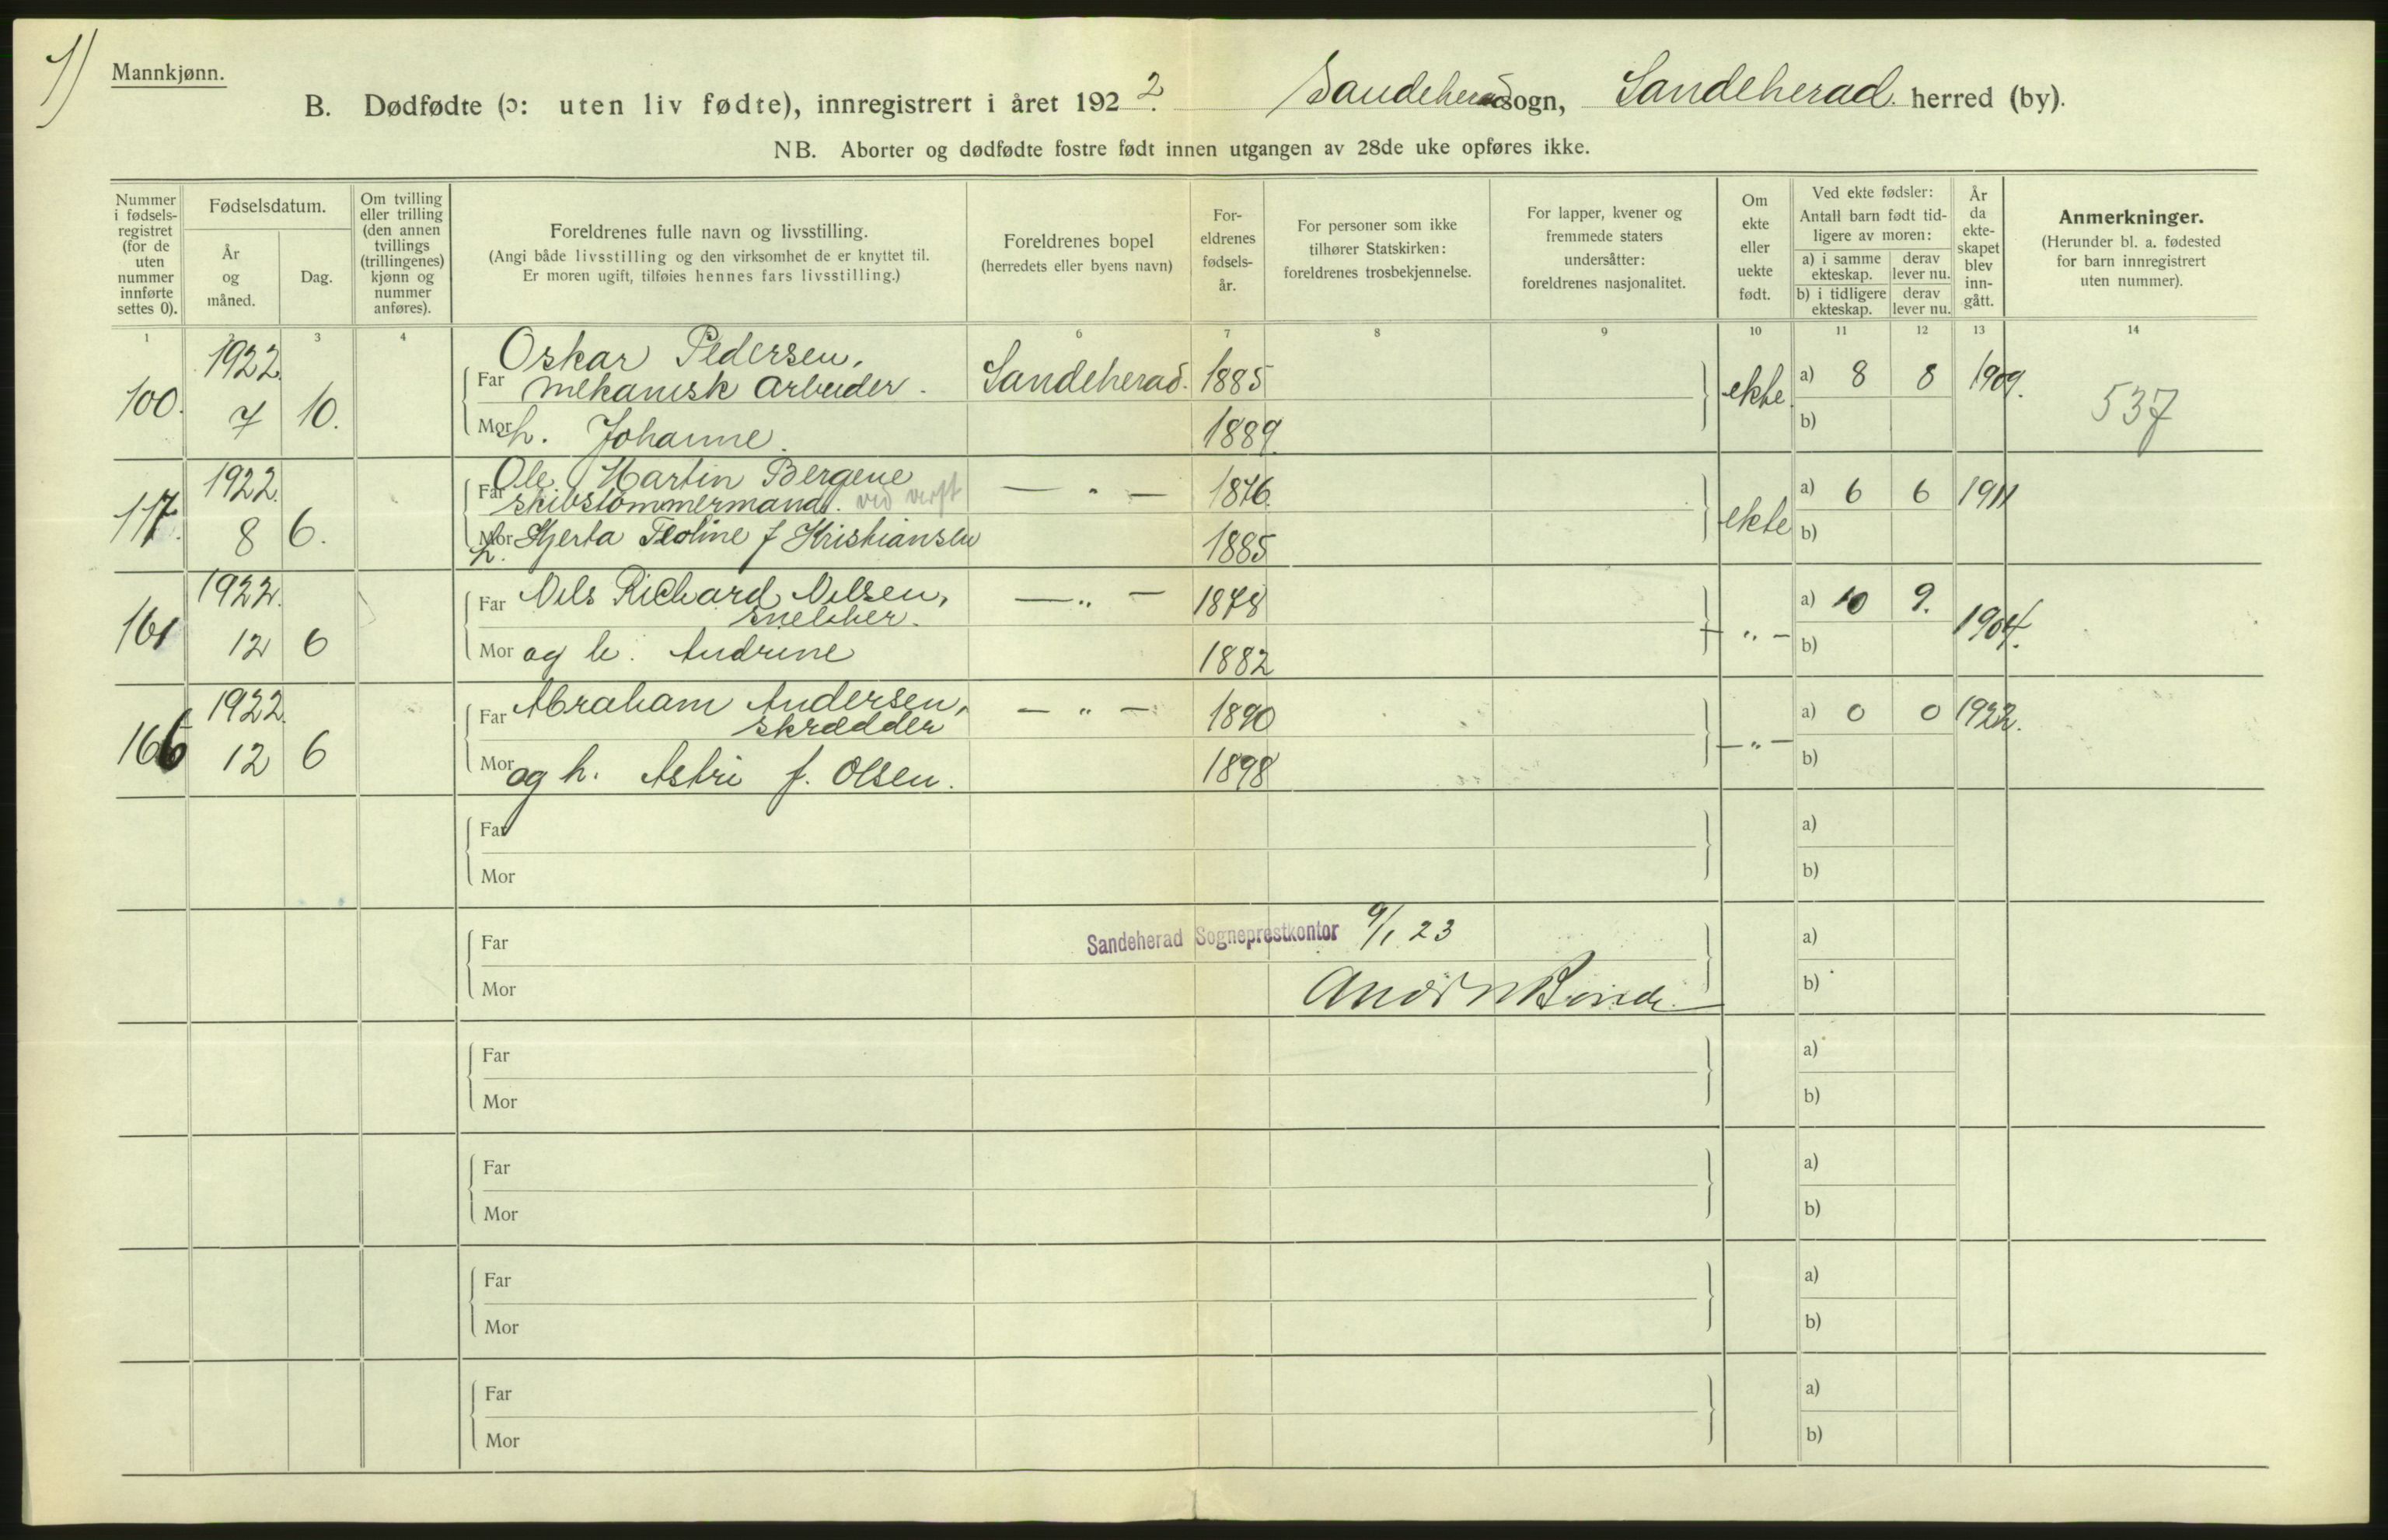 1)
Mannkjønn.
B. Dødfødte (ɔ: uten liv fødte), innregistrert i året 1922. Sandeherad sogn, Sandeherad. herred (by).
NB. Aborter og dødfødte fostre født innen utgangen av 28de uke opføres ikke.
Nummer i fødselsregistret (for de uten nummer innførte settes 0).
Fødselsdatum.
År og måned.
Dag.
Om tvilling eller trilling (den annen tvillings (trillingenes) kjønn og nummer anføres).
Foreldrenes fulle navn og livsstilling.
(Angi både livsstilling og den virksomhet de er knyttet til.
Er moren ugift, tilføies hennes fars livsstilling.)
Foreldrenes bopel
(herredets eller byens navn)
Foreldrenes fødselsår.
For personer som ikke tilhører Statskirken: foreldrenes trosbekjennelse.
For lapper, kvener og fremmede staters undersåtter: foreldrenes nasjonalitet.
Om ekte eller uekte født.
Ved ekte fødsler:
Antall barn født tidligere av moren:
a) i samme ekteskap. derav lever nu.
b) i tidligere ekteskap. derav lever nu.
År da ekteskapet blev inngått.
Anmerkninger.
(Herunder bl. a. fødested for barn innregistrert uten nummer).
1 2 3 4 6 7 8 9 10 11 12 13 14
100. 1922. 7 10.
Far Oskar Pedersen, mekanisk arbeider. Sandeherad. 1885
Mor h. Johanne. 1889.
ekte a) 8 8 1909.
b)
537
117. 1922. 8 6.
Far Ole Martin Bergene skibstømmermand. ved verft — " — 1876.
Mor h. Hjerta Teoline f Kristiansen 1885
ekte a) 6 6 1911
b)
161 1922. 12 6
Far Nils Richard Nilsen, — " — 1878
Mor og h. Andrine 1882
— " — a) 10 9. 1904.
b)
166 1922. 12 6
Far Abraham Andersen, skrædder — " — 1890
Mor og h. Astri f. Olsen. 1898
— " — a) 0 0 1922.
b)
Far a)
Mor b)
Sandeherad Sogneprestkontor 9/1 23
Far a)
Mor b)
Far a)
Mor b)
Far a)
Mor b)
Far a)
Mor b)
Far a)
Mor b)